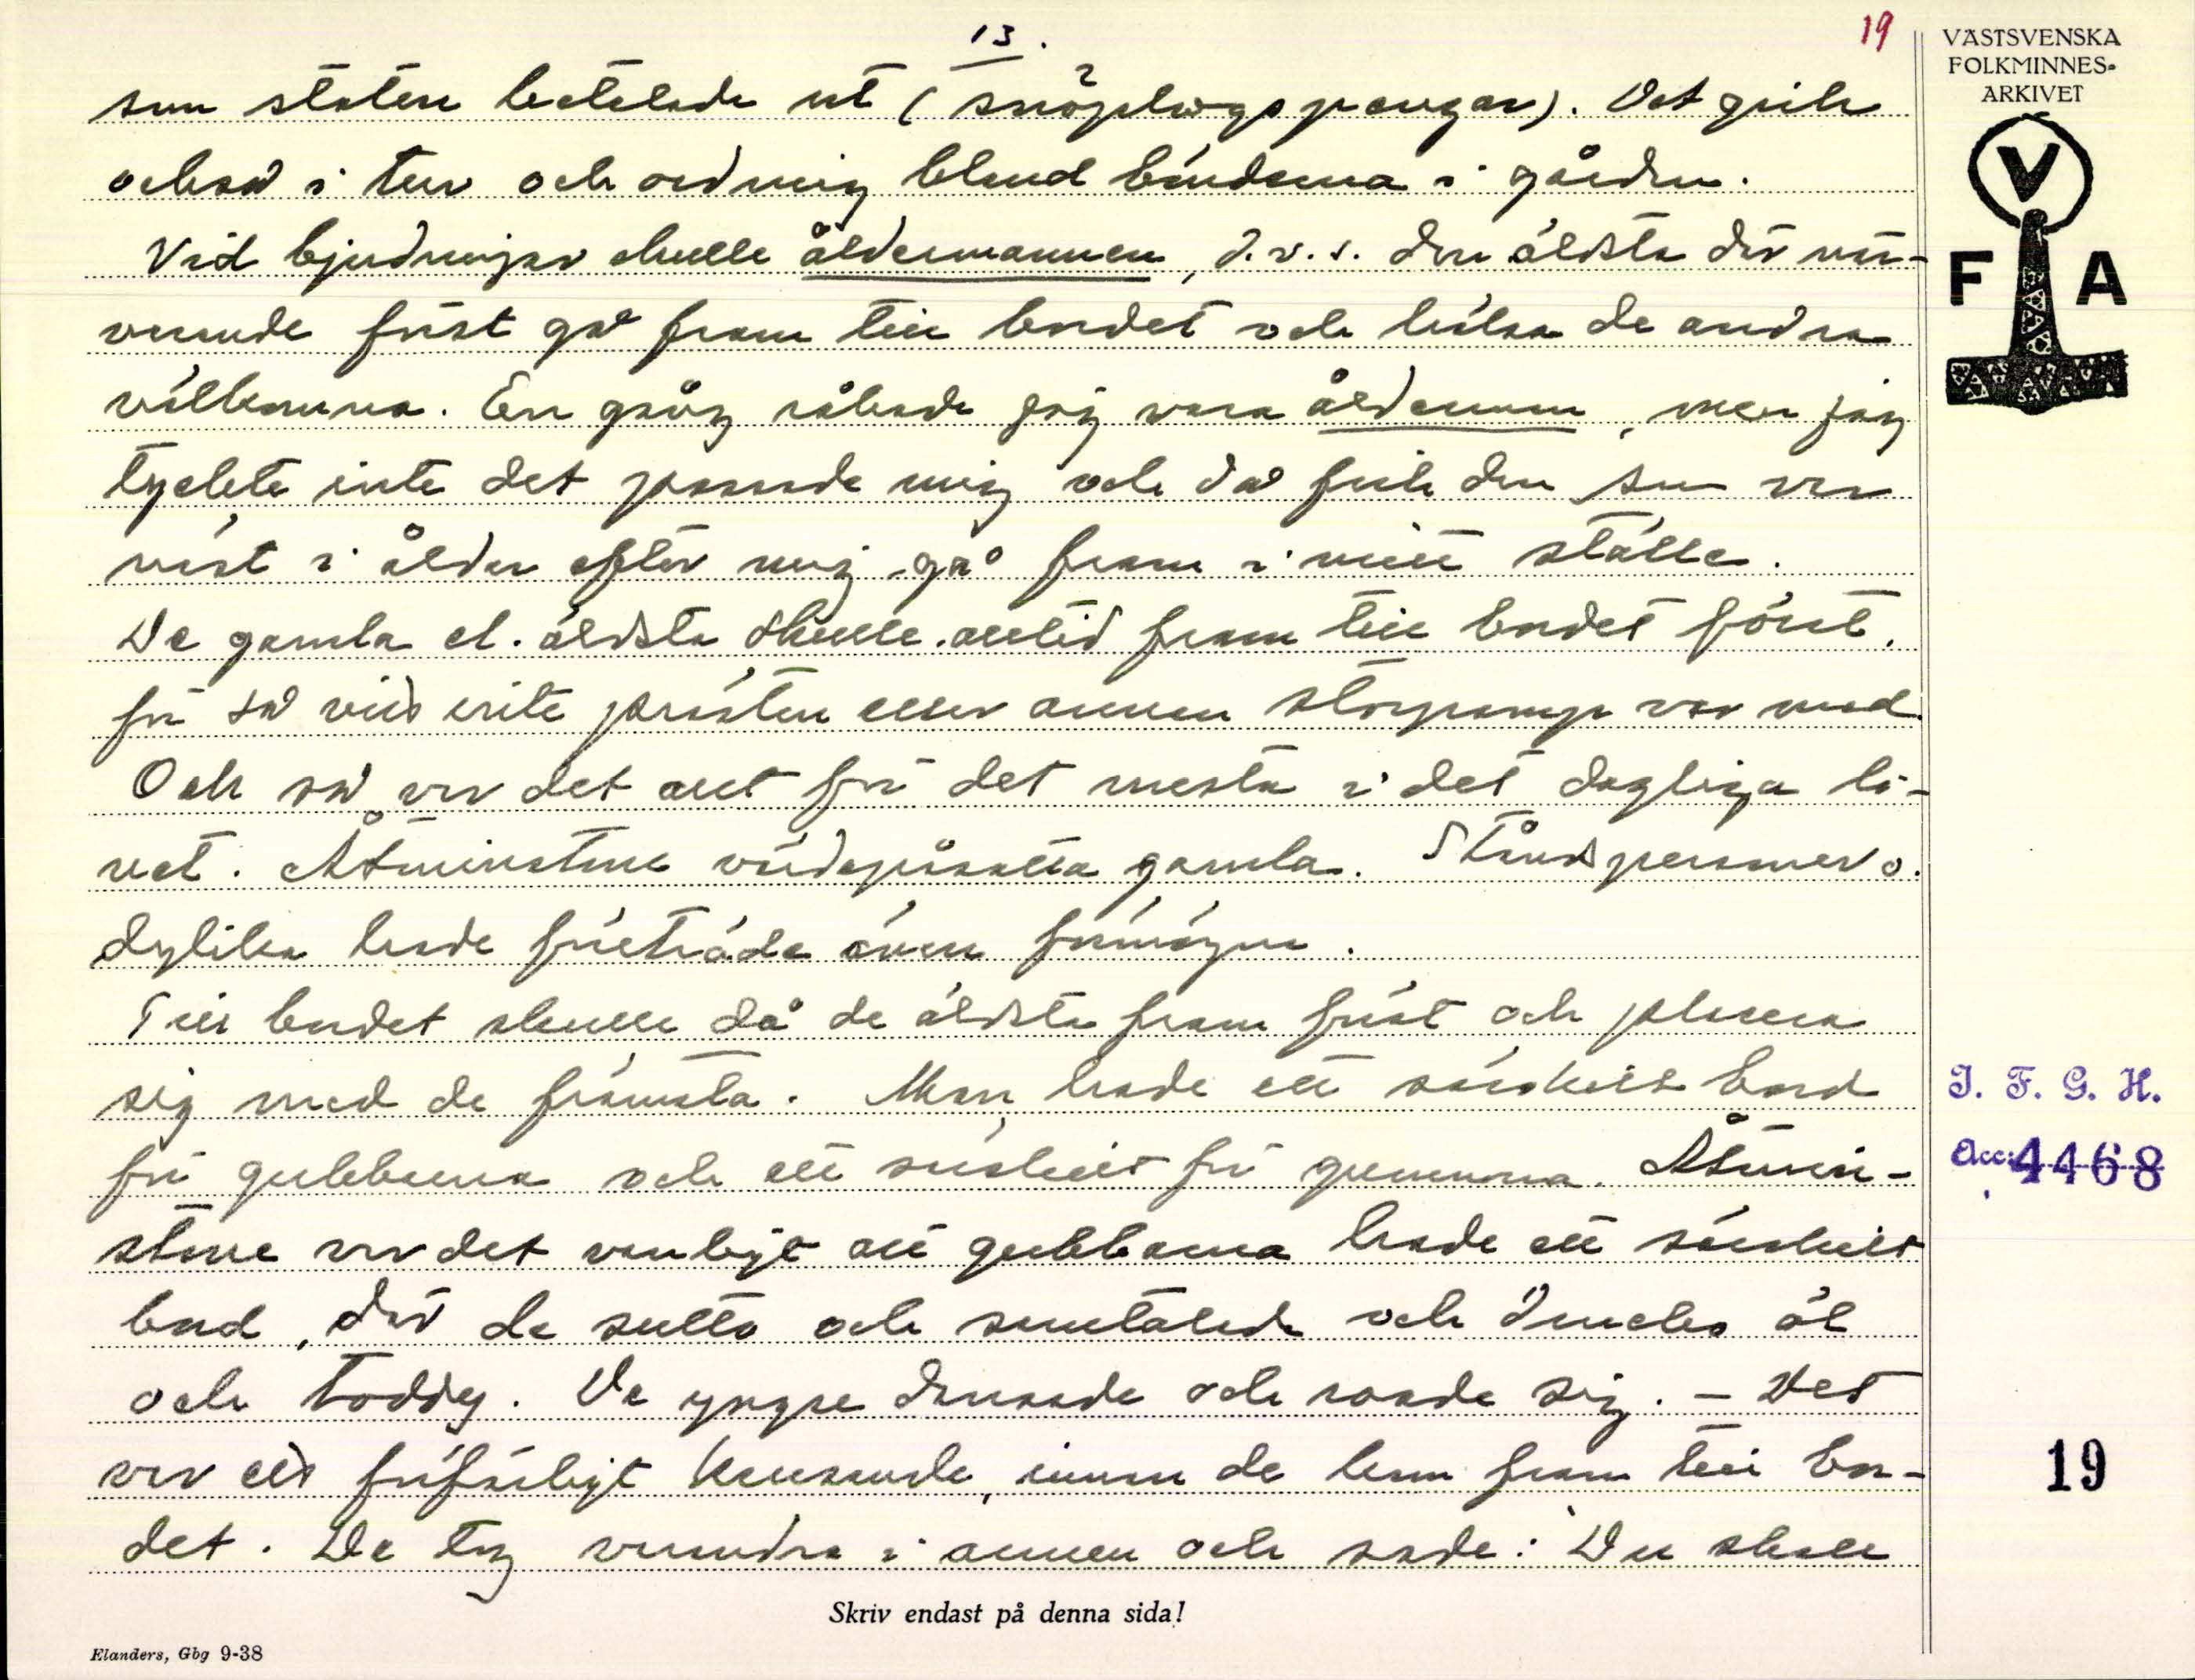 13.
19
VÄSTSVENSKA
FOLKMINNES-
ARKIVET
V
F A
som staten betalade ut (snöplogspengar). Det gick
också i tur och ordning bland bönderna i gården.
Vid bjudningar skulle åldermannen, d.v.s. den äldsta där när-
varande först gå fram till bordet och hälsa de andra
välkomna. En gång råkade jag vara ålderman, men jag
tyckte inte det passade mig och då fick den som var
näst i ålder efter mig gå fram i mitt ställe.
De gamla el. äldsta skulle alltid fram till bordet först,
för så vitt inte prästen eller annan storpamp var med.
Och så var det allt för det mesta i det dagliga li-
vet. Åtminstone välvilliga gamla. Ståndspersoner o.
dylika hade företräde även förmögna.
Till bordet skulle då de äldsta fram först och placera
sig med de främsta. Man hade ett särskilt bord
för gubbarna och ett särskilt för gummorna. Åtmin-
stone var det vanligt att gubbarna hade ett särskilt
bord, där de sutto och samtalade och drucko öl
och toddy. De yngre dansade och roade sig. - Det
var ett förfärligt krusande, innan de kom fram till bor-
det. De tog varandra i armen och sade: Du skall
J. F. G. H.
Acc: 4468
19
Skriv endast på denna sida!
Elanders, Gbg 9-38